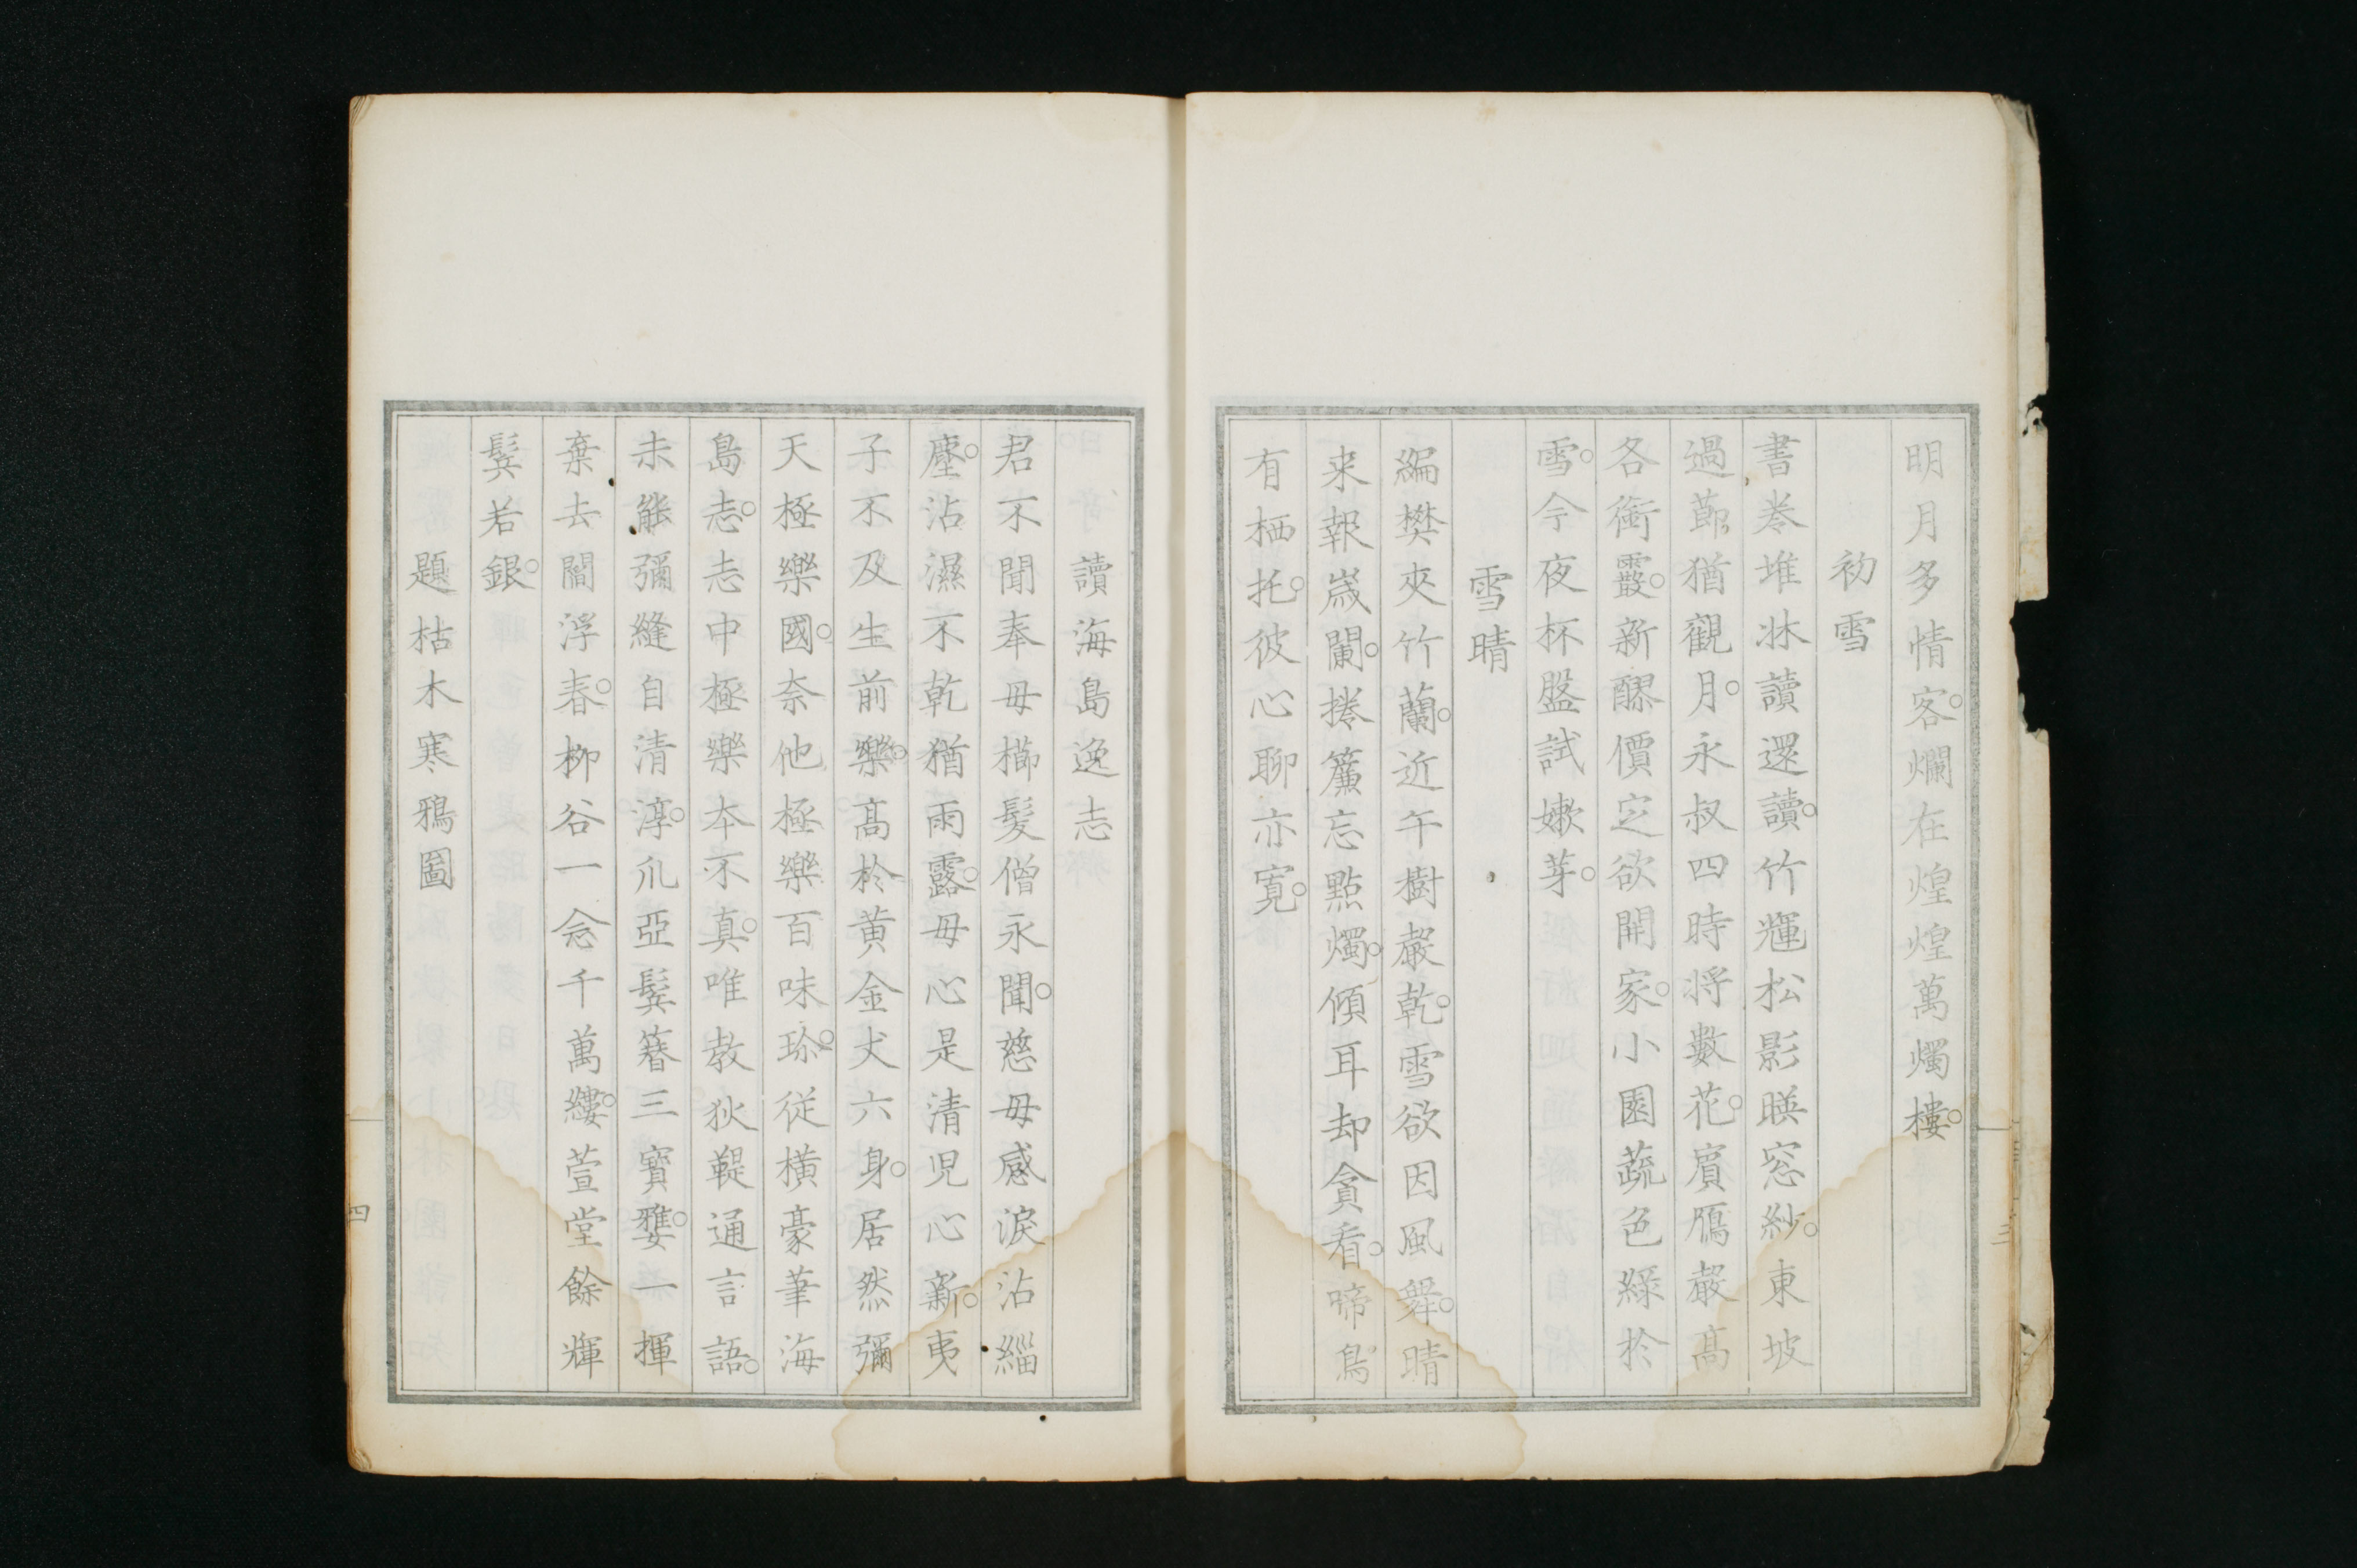 明月多情客。爛在煌煌萬燭樓。
初雪
書卷堆牀讀還讀。竹輝松影暎窓紗。東坡
過莭猶觀月。永叔四時将數花。賔鴈嚴高
各銜霰。新醪價定欲開家。小園蔬色綠於
雪。今夜杯盤試嫰芽。
雪晴
編樊夾竹蘭。近午樹嚴乾。雪欲因風舞。晴
来報嵗闌。捲簾忘點燭。傾耳却貪看。啼鳥
有栖托。彼心聊亦寛。
三
讀海島逸志
君不聞奉母櫛髮僧永聞。慈母感淚沾緇
塵。沾濕不乾猶雨露。母心是清児心新。夷
子不及生前樂。髙於黄金丈六身。居然彌
天極樂國。奈他極樂百味珎。従橫豪筆海
島志。志中極樂夲不真。唯教狄鞮通言語。
未能彌縫自清淳。爪亞鬓簪三寶䨇。一揮
棄去閻浮春。柳谷一念千萬縷。萱堂餘輝
鬓若銀。
題枯木寒鴉圖
四